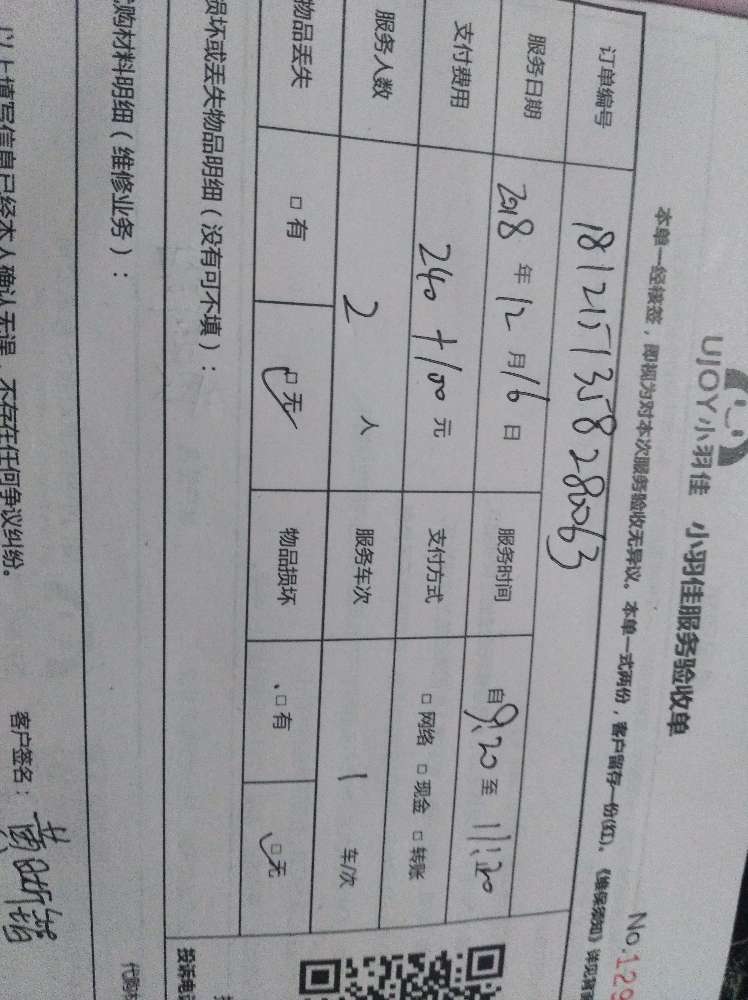 UJOY小羽佳 小羽佳服务验收单
No.129
本单一经接签，即视为对本次服务验收无异议。本单一式两份，客户留存一份(红)。《维保须知》详见背
订单编号 181215135828063
服务日期 2018年12月16日 服务时间 自9:20至11:20
支付费用 240+100元 支付方式 □网络 □现金 □转账
服务人数 2人 服务车次 1车/次
物品丢失 □有 □无 物品损坏 □有 □无
损坏或丢失物品明细（没有可不填）：
投诉电
购材料明细（维修业务）：
代购
以上填写信息已经本人确认无误，不存在任何争议纠纷。 客户签名：